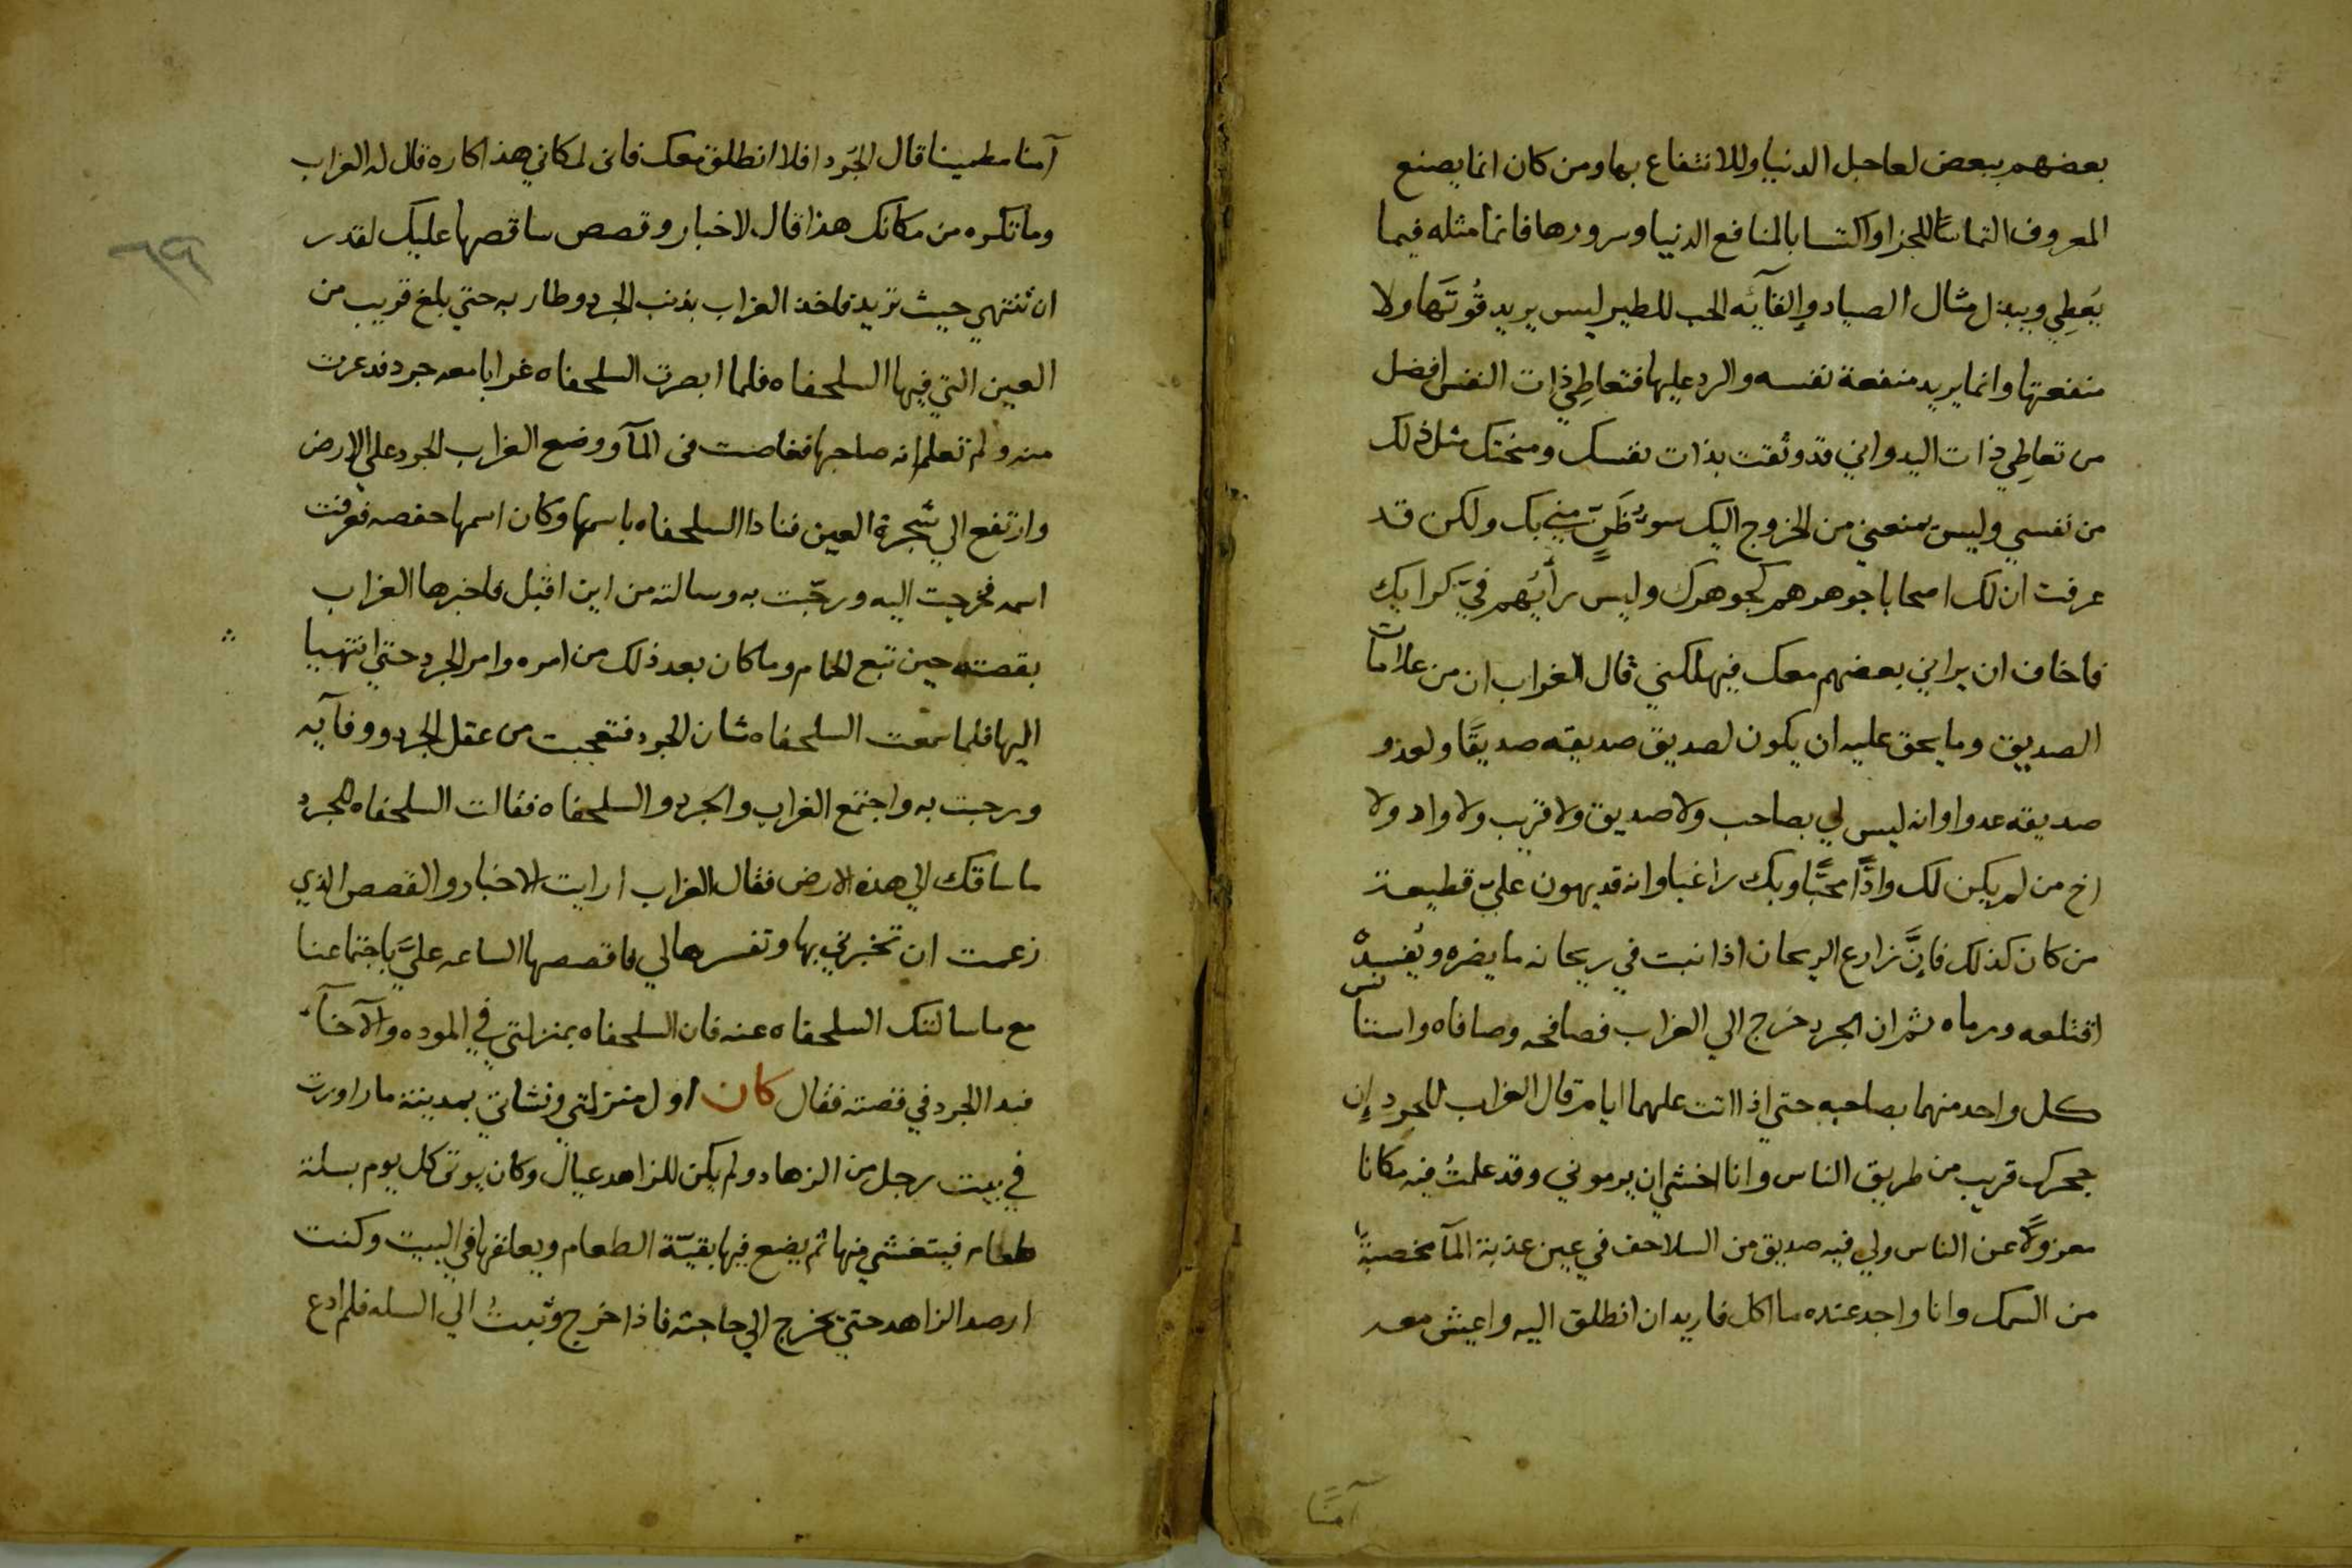 بعضهم ببعض لعاجل الدنيا وللانتفاع بها ومن كان انما يصنع
المعروف التماسًا للجزا واكتسابا لمنافع الدنيا وسرورها فانما مثله فيما
يُعطِي ويبذل مثال الصياد وإلقآئه الحب للطير ليس يريد قُوتَها ولا
منفعتها وانما يريد منفعة نفسه والرد عليها فتعاطِي ذات النفس افضل
من تعاطِي ذات اليد واني قد وثقت بذات نفسك ومنحتك مثل ذلك
من نفسي وليس يمنعني من الخروج اليك سوءُ ظَنٍّ مني بك ولكن قد
عرفت ان لك اصحابا جوهرهم كجوهرك وليس رأيُهم فيّ كرايك
فاخاف ان يراني بعضهم معك فيهلكني قال الغراب ان من علامات
الصديق وما يحق عليه ان يكون لصديق صديقه صديقًا ولعدو
صديقه عدوا وانه ليس لي بصاحب ولا صديق ولا قريب ولا واد ولا
اخ من لم يكن لك وادًّا محبًّا وبك راغبا وانه قد يهون عليّ قطيعة
من كان كذلك فإنَّ زارع الريحان اذا نبت في ريحانه ما يضره ويُفسدهُ
اقتلعه ورماه ثم ان الجرد خرج الي الغراب فصافحه وصافاه واستانس
كل واحد منهما بصاحبه حتي اذا اتت عليهما ايام قال الغراب للجرد إن
جحرك قريب من طريق الناس وانا اخشي ان يرموني وقد علمتُ فيه مكانا
معزولًا عن الناس ولي فيه صديق من السلاحف في عين عذبة المآ مخصبةً
من السمك وانا واجد عنده ما اكل فاريد ان انطلق اليه واعيش معه
آمنًا
آمنا مطمينا قال الجُرد افلا انطلق معك فاني لمكاني هذا كاره قال له الغراب
وما تكره من مكانك هذا قال لاخبار وقصص ساقصها عليك لقدر
ان تنتهي حيث تريد فاخذ الغراب بذنب الجرد وطار به حتي بلغ قريب من
العين التي فيها السلحفاه فلما ابصرت السلحفاه غرابا معه جرد فدعرت
منه ولم تعلم انه صاحبها فغاصت في المآ ووضع الغراب الجرد علي الارض
وارتفع الي شجرة العين فنادا السلحفاه باسمها وكان اسمها حفصه فعرفت
اسمه فخرجت اليه ورحّبت به وسالته من اين اقبل فاخبرها الغراب
بقصته حين تبع الحمام وما كان بعد ذلك من امره وامر الجرد حتي انتهيا
اليها فلما سمعت السلحفاه شان الجرد فتعجبت من عقل الجرد ووفآيه
ورحبت به واجتمع الغراب والجرد والسلحفاه فقالت السلحفاه للجرد
ما ساقك الي هذه الارض فقال الغراب ارايت الاخبار والقصص الذي
زعمت ان تخبرني بها وتفسرها لي فاقصصها الساعه عليَّ باجتماعنا
مع ما سالتك السلحفاه عنه فان السلحفاه بمنزلتي في الموده والآخآء
فبدا الجرد في قصته فقال كان اول منزلتي ونشاتي بمدينة ماراورت
في بيت رجل من الزهاد ولم يكن للزاهد عيال وكان يوتي كل يوم بسلة
طعام فيتغشي منها ثم يضع فيها بقيّة الطعام ويعلقها في البيت وكنت
ارصد الزاهد حتي يخرج الي حاجته فاذا خرج وثبتُ الي السله فلم ادع
٦٩